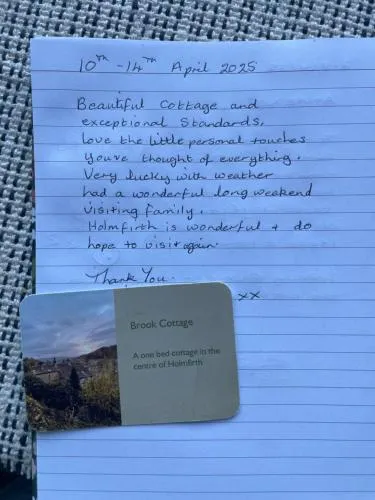 10th - 14th April 2025
Beautiful Cottage and
exceptional Standards.
Love the little personal touches
You've thought of everything.
Very lucky with weather
had a wonderful long weekend
visiting family.
Holmfirth is wonderful + do
hope to visit again.
Thank You.
xx
Brook Cottage
A one bed cottage in the
centre of Holmfirth